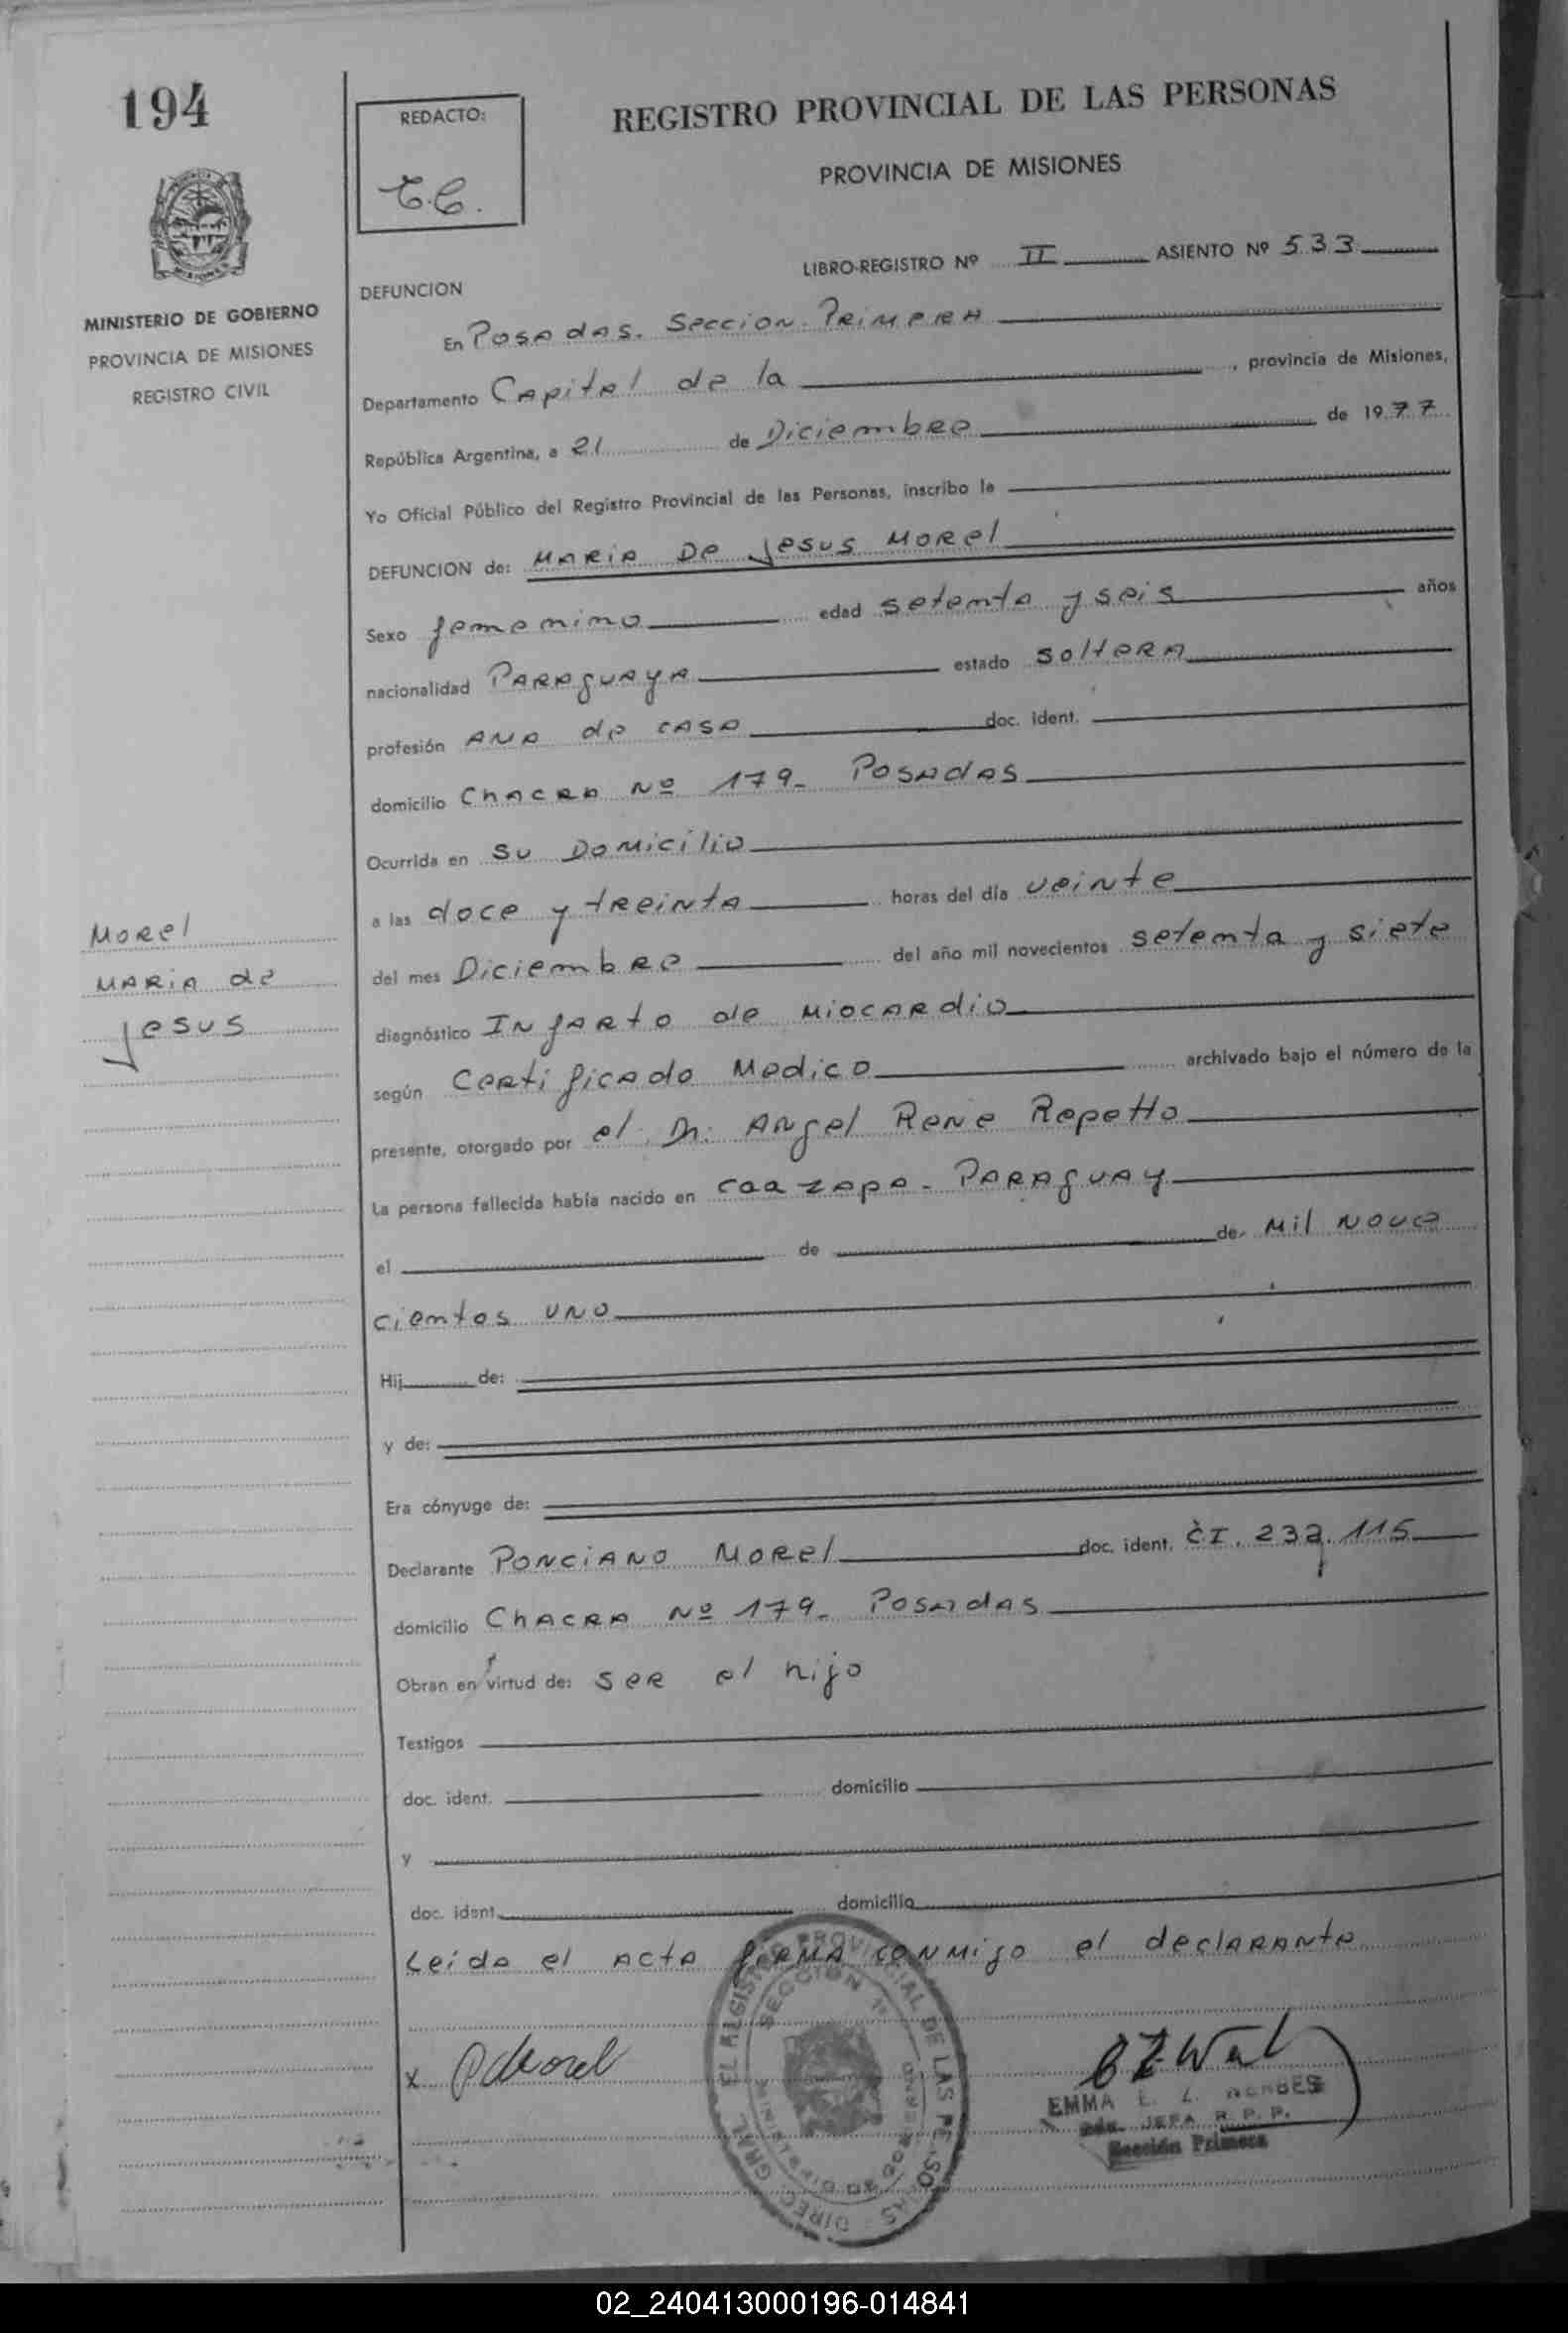 194
REDACTO:
REGISTRO PROVINCIAL DE LAS PERSONAS
PROVINCIA DE MISIONES
LIBRO-REGISTRO Nº II ASIENTO Nº 533
MINISTERIO DE GOBIERNO
PROVINCIA DE MISIONES
REGISTRO CIVIL
DEFUNCION
En Posadas. Seccion Primera
Departamento Capital de la , provincia de Misiones,
República Argentina, a 21 de Diciembre de 1977
Yo Oficial Público del Registro Provincial de las Personas, inscribo la
DEFUNCION de: Maria De Jesus Morel
Sexo femenino edad setenta y seis años
nacionalidad Paraguaya estado soltera
profesión Ama de casa doc. ident.
domicilio Chacra Nº 179- Posadas
Ocurrida en su Domicilio
a las doce y treinta horas del día veinte
Morel
Maria de
Jesus
del mes Diciembre del año mil novecientos setenta y siete
diagnóstico Infarto de Miocardio
según Certificado Medico archivado bajo el número de la
presente, otorgado por el Dr. Angel Rene Repetto
La persona fallecida había nacido en Caazapa- Paraguay
el de de Mil nove
cientos uno
Hij de:
y de:
Era cónyuge de:
Declarante Ponciano Morel doc. ident. CI. 115
domicilio Chacra Nº 179- Posadas
Obran en virtud de: ser el hijo
Testigos
doc. ident. domicilio
y
doc. ident. domicilio
Leida el acta firma conmigo el declarante
x PMorel
EMMA
JEFA R. P. P.
Sección Primera
02_240413000196-014841